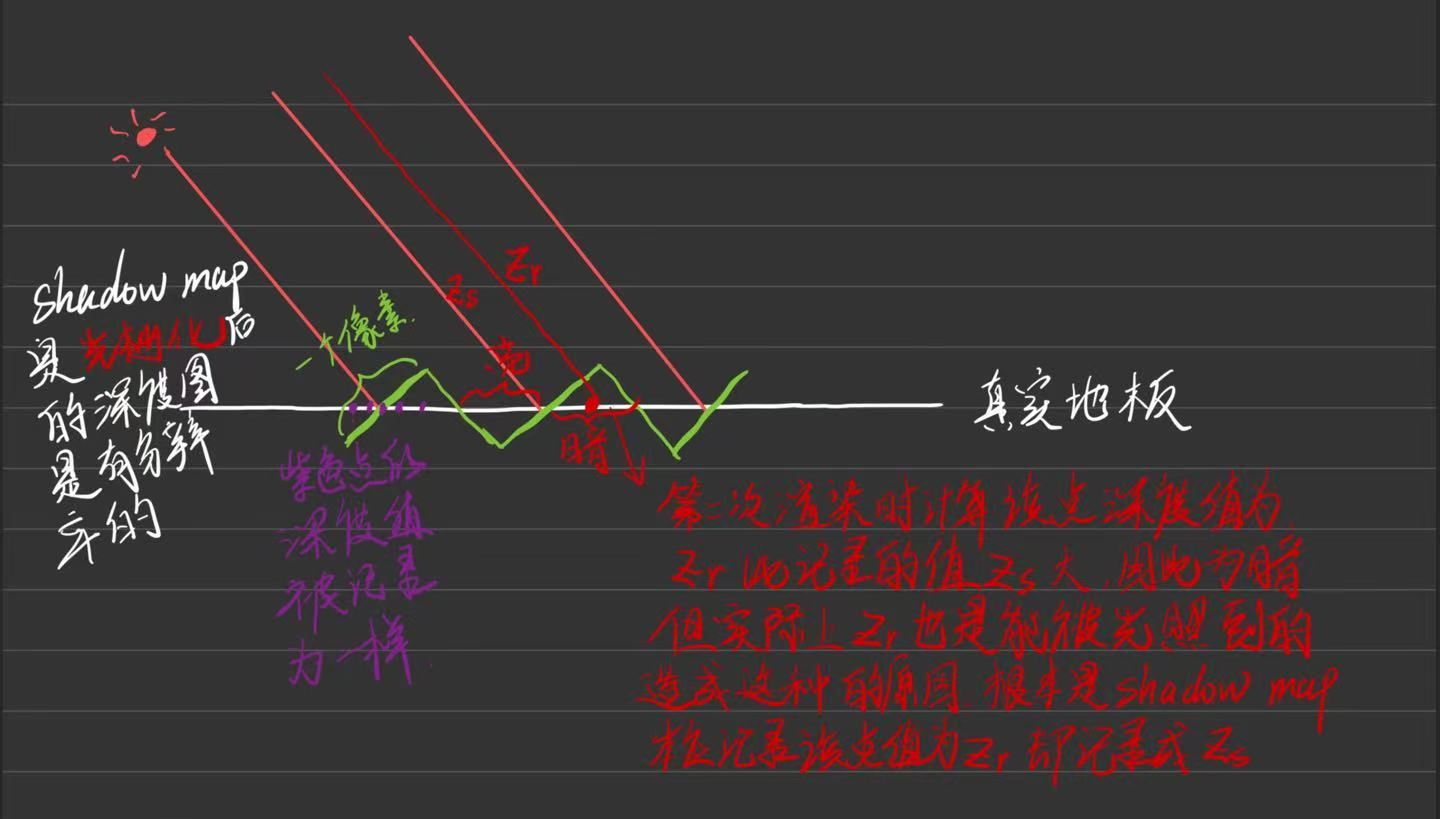 shadow map
是光栅化后
的深度图
是有分辨
率的
一个像素.
Zs
Zr
亮
暗
真实地板
紫色点的
深度值
被记录
为一样.
第二次渲染时计算该点深度值为
Zr 比记录的值 Zs 大,因此为暗
但实际上 Zr 也是能被光照到的
造成这种的原因.根本是 shadow map
本应记录该点值为 Zr 却记录成 Zs